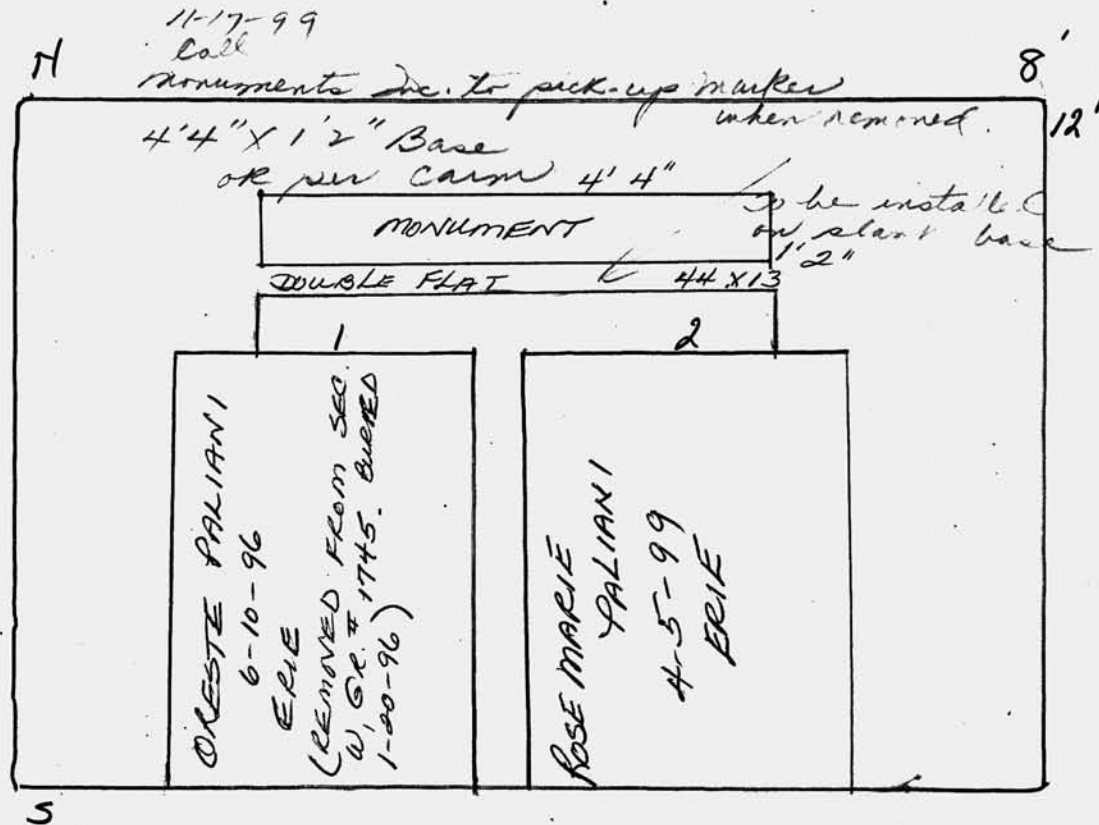 11-17-99
Call
N
8'
Monuments Inc. to pick-up marker
when removed.
12'
4'4" X 1'2" Base
OK per Carm
4'4"
To be installed
on slant base
MONUMENT
1'2"
DOUBLE FLAT
44 X 13
1
2
ORESTE PALIANI
6-10-96
ERIE
(REMOVED FROM SEC.
W, GR. # 1745. BURIED
1-20-96)
ROSE MARIE
PALIANI
4-5-99
ERIE
S